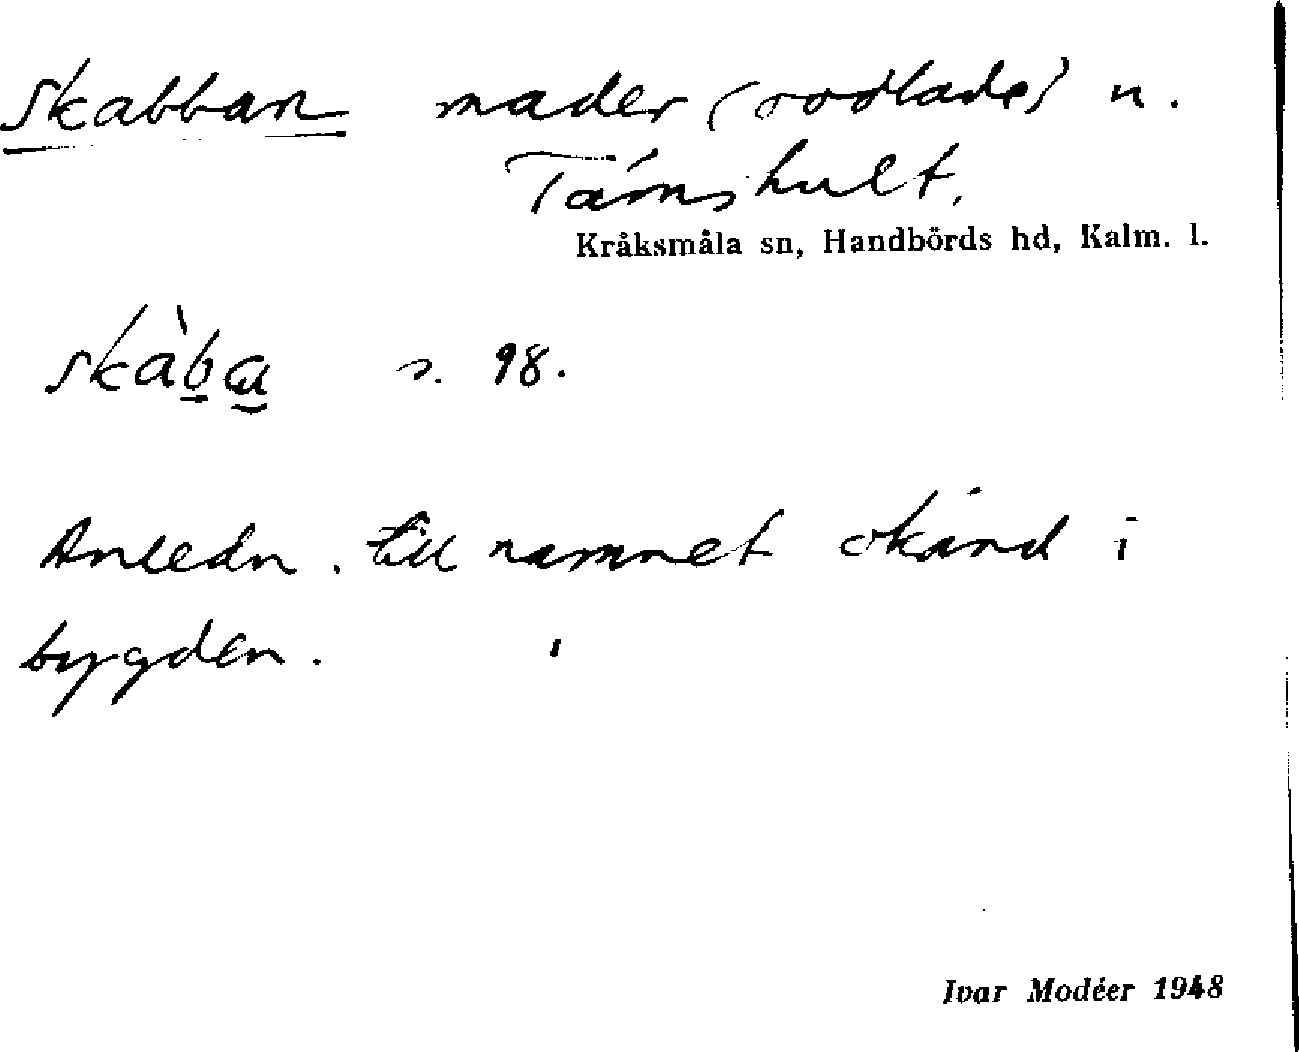 Skabban mader (oodlade) u.
Tämshult.
Kråksmåla sn, Handbörds hd, Kalm. l.
skàba s. 98.
Anledn. till namnet okänd i
bygden.
Ivar Modéer 1948